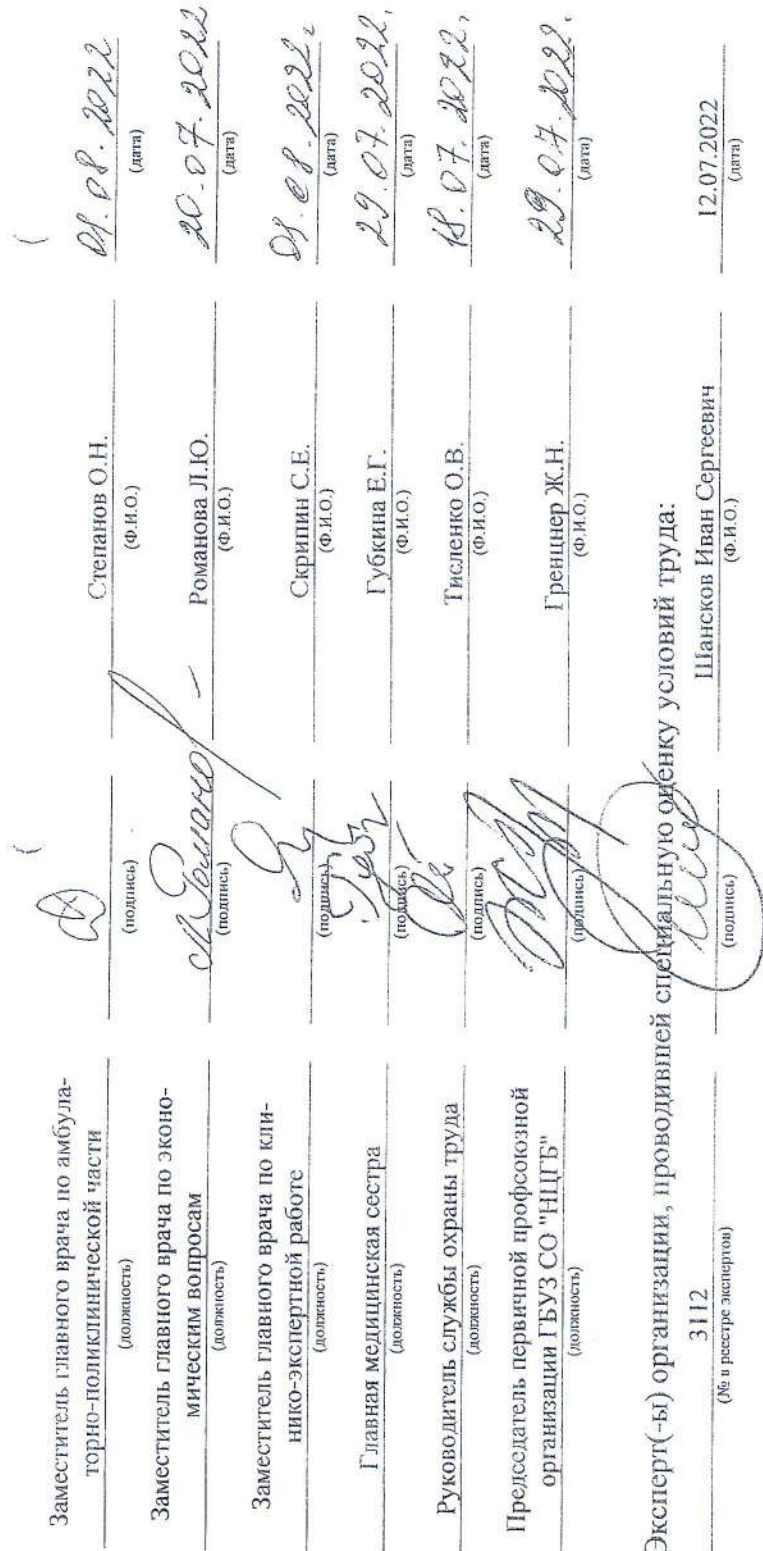 Заместитель главного врача по амбула-
торно-поликлинической части
(должность)
(подпись)
Степанов О.Н.
(Ф.И.О.)
01.08.2022
(дата)
Заместитель главного врача по эконо-
мическим вопросам
(должность)
(подпись)
Романова Л.Ю.
(Ф.И.О.)
20.07.2022
(дата)
Заместитель главного врача по кли-
нико-экспертной работе
(должность)
(подпись)
Скрипин С.Е.
(Ф.И.О.)
01.08.2022г
(дата)
Главная медицинская сестра
(должность)
(подпись)
Губкина Е.Г.
(Ф.И.О.)
29.07.2022.
(дата)
Руководитель службы охраны труда
(должность)
(подпись)
Тисленко О.В.
(Ф.И.О.)
18.07.2022,
(дата)
Председатель первичной профсоюзной
организации ГБУЗ СО "НЦГБ"
(должность)
(подпись)
Гренцнер Ж.Н.
(Ф.И.О.)
29.07.2022.
(дата)
Эксперт(-ы) организации, проводившей специальную оценку условий труда:
3112
(№ в реестре экспертов)
(подпись)
Шансков Иван Сергеевич
(Ф.И.О.)
12.07.2022
(дата)